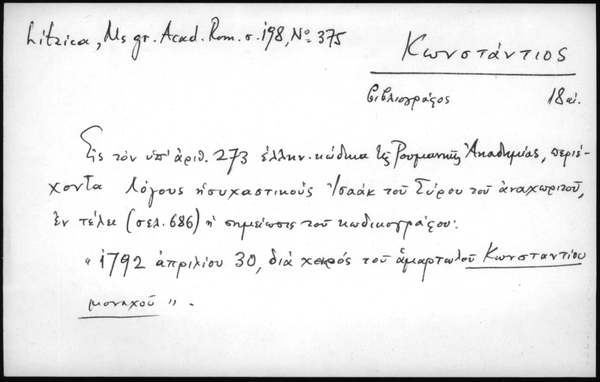 Litzica, Ms gr. Acad. Rom. σ. 198, No 375
Κωνστάντιος
βιβλιογράφος 18 αἰ.
Εἰς τὸν ὑπ' ἀριθ. 273 ἑλλην. κώδικα τῆς Ρουμανικῆς Ἀκαδημίας, περιέ-
χοντα Λόγους ἡσυχαστικοὺς Ἰσαὰκ τοῦ Σύρου τοῦ ἀναχωρητοῦ,
ἐν τέλει (σελ. 686) ἡ σημείωσις τοῦ κωδικογράφου:
" 1792 ἀπριλίου 30, διὰ χειρός τοῦ ἁμαρτωλοῦ Κωνσταντίου
μοναχοῦ ".